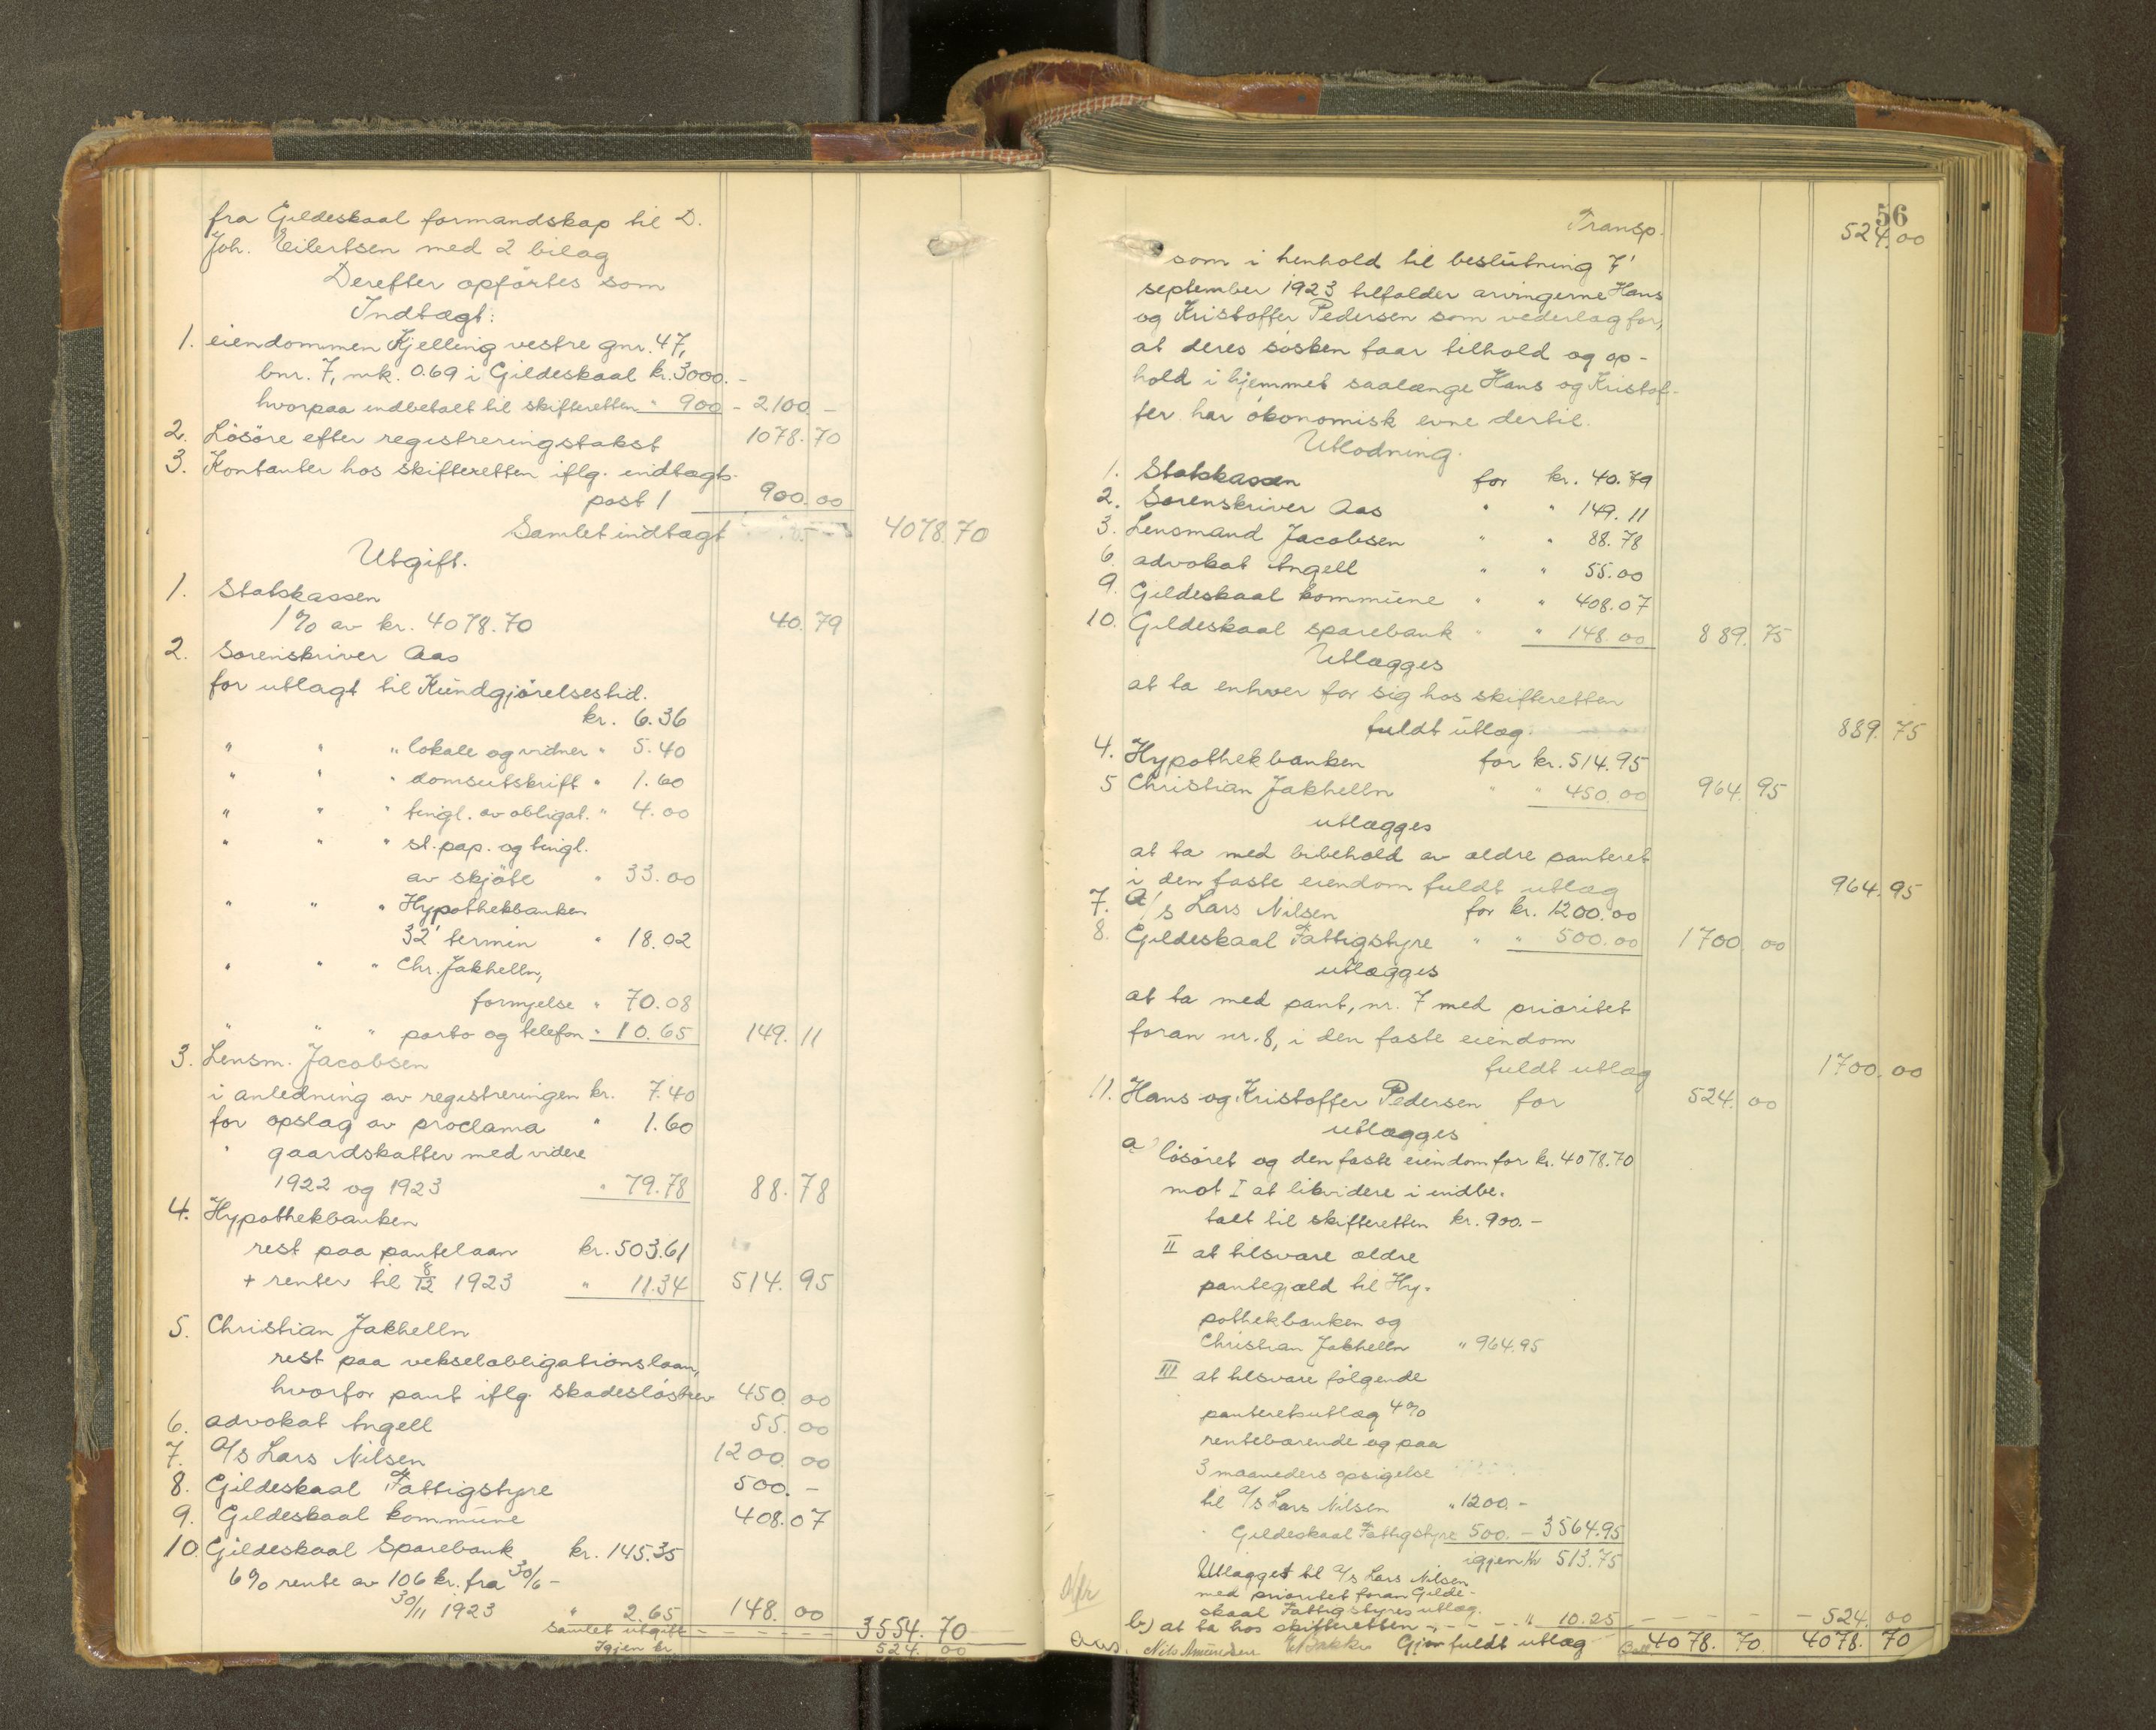 fra Gildeskaal formandskap til D.
Joh. Eilertsen med 2 bilag
Derefter opførtes som
Indtægt:
1. eiendommen Kjelling vestre gnr. 47,
bnr. 7, mk. 0.69 i Gildeskaal kr. 3000. -
hvorpaa indbetalt til skifteretten " 900 - 2100 -
2. Løsøre efter registreringstakst 1078.70
3. Kontanter hos skifteretten iflg. indtægts-
post 1 900.00
Samlet indtægt 4078.70
Utgift.
1. Statskassen
1% av kr. 4078.70 40.79
2. Sorenskriver Aas
for utlagt til Kundgjørelsestid.
kr. 6.36
" " " lokale og vidner " 5.40
" " " domsutskrift " 1.60
" " " tingl. av obligat. " 4.00
" " " st. pap. og tingl.
av skjøte " 33.00
" " " Hypothekbanken
32' termin " 18.02
" " " Chr. Jakhelln,
fornyelse " 70.08
" " " porto og telefon " 10.65 149.11
3. Lensm. Jacobsen
i anledning av registreringen kr. 7.40
for opslag av proclama " 1.60
" gaardskatter med videre
1922 og 1923 " 79.78 88.78
4. Hypothekbanken
rest paa pantelaan kr. 503.61
+ renter til 8/12 1923 " 11.34 514.95
5. Christian Jakhelln
rest paa vekselobligationslaan,
hvorfor pant iflg. skadesløsbrev 450.00
6. advokat Angell 55.00
7. A/S Lars Nilsen 1200.00
8. Gildeskaal Fattigstyre 500. -
9. Gildeskaal kommune 408.07
10. Gildeskaal Sparebank kr. 145.35
6% rente av 106 kr. fra 30/6 -
30/11 1923 " 2.65 148.00
Samlet utgift - - - - - 3554.70
Igjen kr. 524.00
56
Transp. 524.00
som i henhold til beslutning 7'
september 1923 tilfalder arvingerne Hans
og Kristoffer Pedersen som vederlag for,
at deres søsken faar tilhold og op-
hold i hjemmet saalænge Hans og Kristof-
fer har økonomisk evne dertil.
Utlodning.
1. Statskassen for kr. 40.79
2. Sorenskriver Aas " " 149.11
3. Lensmand Jacobsen " " 88.78
6. advokat Angell " " 55.00
9. Gildeskaal kommune " " 408.07
10. Gildeskaal sparebank " " 148.00 889.75
Utlægges
at ta enhver for sig hos skifteretten
fuldt utlæg 889.75
4. Hypothekbanken for kr. 514.95
5 Christian Jakhelln " " 450.00 964.95
utlægges
at ta med bibehold av ældre panteret
i den faste eiendom fuldt utlæg 964.95
7. A/S Lars Nilsen for kr. 1200.00
8. Gildeskaal Fattigstyre " " 500.00 1700.00
utlægges
at ta med pant, nr. 7 med prioritet
foran nr. 8, i den faste eiendom
fuldt utlæg 1700.00
11. Hans og Kristoffer Pedersen for 524.00
utlægges
a) løsøret og den faste eiendom for kr. 4078.70
mot I at likvidere i indbe-
talt til skifteretten kr. 900. -
II at tilsvare ældre
pantegjæld til Hy-
pothekbanken og
Christian Jakhelln " 964.95
III at tilsvare følgende
panteretsutlæg 4%
rentebærende og paa
3 maaneders opsigelse
til A/S Lars Nilsen " 1200. -
" Gildeskaal Fattigstyre 500. - 3564.95
igjen kr 513.75
Utlægget til A/S Lars Nilsen
med prioritet foran Gilde-
skaal Fattigstyres utlæg.
b) at ta hos skifteretten - - - " 10.25 - - - - - 524.00
Aas. Nils Amundsen E Bakke Gjør fuldt utlæg Ball. 4078.70 4078.70